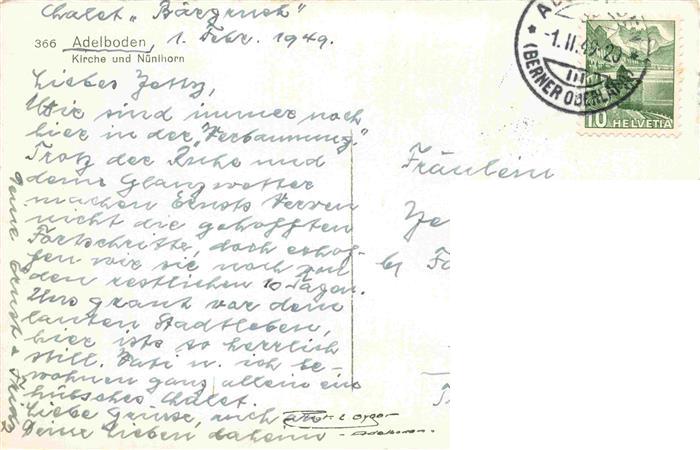 Chalet „Bärgrueh"
366 Adelboden, 1. Febr. 1949.
Kirche und Nünihorn
Liebes Zetty,
Wir sind immer noch
hier in der „Verbannung."
Trotz der Ruhe und
dem Glanzwetter
machen Ernsts Nerven
nicht die gehofften
Fortschritte, doch erhof-
fen wir sie noch von
den restlichen 10 Tagen.
Uns graut vor dem
lauten Stadtleben,
hier ists so herrlich
still. Vati u. ich be-
wohnen ganz allein ein
hübsches Châlet.
Liebe Grüsse, auch
Deine Lieben daheim
Deine Ernst &
Fräulein
-1.II.49-20
(BERNER OBERLAND)
10 HELVETIA
Gyger
Adelboden